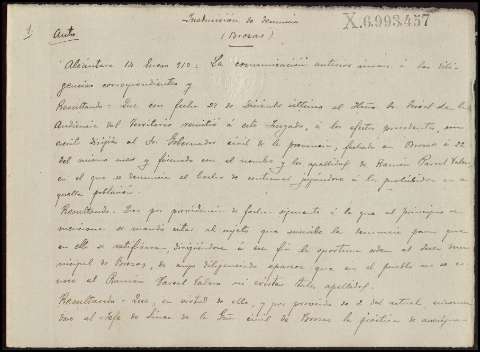 Instrucción de denuncia
X.6.993.457
1 Auto
(Brozas)
Alcántara 14 Enero 912: La comunicación anterior únase á las dili-
gencias correspondientes y
Resultando- Que con fecha 29 de Diciembre último el Iltmo Sr Fiscal de la
Audiencia del Territorio remitió á este Juzgado, á los efectos procedentes, un
escrito dirigido al Sr Gobernador civil de la provincia, fechado en Brozas á 22
del mismo mes y firmado con el nombre y los apellidos de Ramón Valera,
en el que se denuncia el hecho de continuar jugándose á los prohibidos en a
quella población.
Resultando- Que por providencia de fecha siguiente á la que al principio se
menciona se mandó citar al sujeto que suscribe la denuncia para que
en ella se ratificara, dirigiéndose á ese fin la oportuna orden al Juez mu
nicipal de Brozas, de cuyas diligencias aparece que en el pueblo no se co
noce al Ramón Valera ni existen tales apellidos.
Resultando- Que, en virtud de ello, y por proveido de 2 del actual
al Jefe de Línea de la Gua civil de Brozas la práctica de